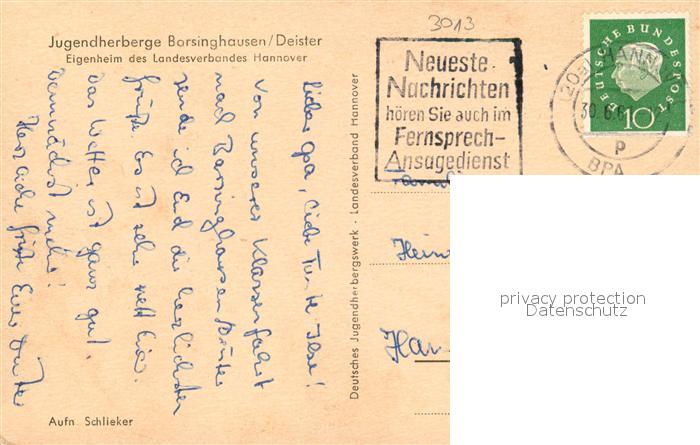 3013
Jugendherberge Borsinghausen/Deister
Eigenheim des Landesverbandes Hannover
Neueste
Nachrichten
hören Sie auch im
Fernsprech-
Ansagedienst
DEUTSCHE BUNDESPOST
10
(20a) HANN
30.6.6
p
BPA
Lieber Opa, liebe Tante Ilse!
Von unserer Klassenfahrt
nach Barsinghausen/Deister
sende ich Euch die herzlichsten
Grüße. Es ist sehr nett hier.
Das Wetter ist ganz gut.
Demnächst mehr!
Herzliche Grüße Eure
Deutsches Jugendherbergswerk · Landesverband Hannover
Famili
Hein
Han
privacy protection
Datenschutz
Aufn. Schlieker